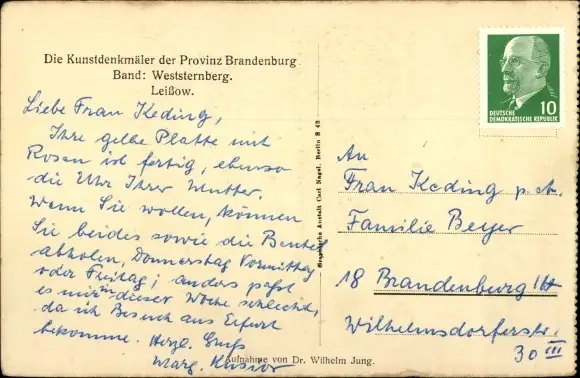 Die Kunstdenkmäler der Provinz Brandenburg
Band: Weststernberg.
Leißow.
Liebe Frau Keding,
Ihre gelbe Platte mit
Rosen ist fertig, ebenso
die Uhr Ihrer Mutter.
Wenn Sie wollen, können
Sie beides sowie die Beutel
abholen, Donnerstag Vormittag
oder Freitag; anders paßt
es mir in dieser Woche schlecht,
da ich Besuch aus Erfurt
bekomme. Herzl. Gruß
Marg.
Aufnahme von Dr. Wilhelm Jung.
Graphische Anstalt Carl Nagel, Berlin S 42
DEUTSCHE
DEMOKRATISCHE REPUBLIK
10
An
Frau Keding p. A.
Familie Beyer
18 Brandenburg/H
Wilhelmsdorferstr.
30 III